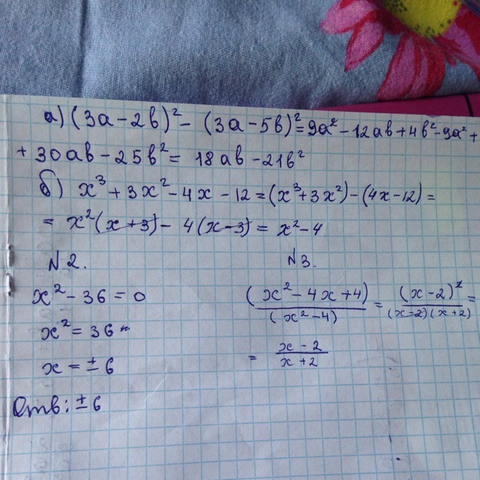 а) (3a-2b)² - (3a-5b)² = 9a² - 12ab + 4b² - 9a² +
+ 30ab - 25b² = 18ab - 21b²
б) x³ + 3x² - 4x - 12 = (x³ + 3x²) - (4x - 12) =
= x²(x+3) - 4(x-3) = x² - 4
N2.
N3.
x² - 36 = 0
x² = 36
x = ±6
Отв: ±6
(x² - 4x + 4)/(x² - 4) = (x-2)²/(x-2)(x+2) =
= x-2/x+2